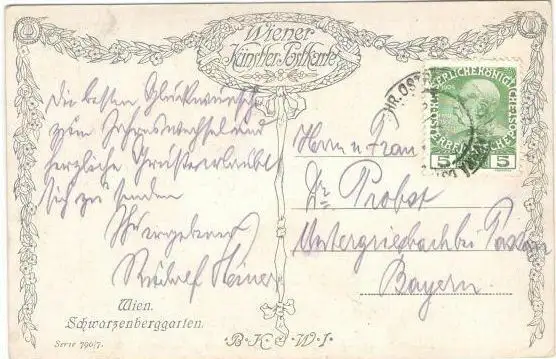 Wiener
Künstler-Postkarte
Die besten Glückwünsche
zum Jahreswechsel und
herzliche Grüsse erlaubt
sich zu senden
Ihr ergebener
Rudolf
Wien.
Schwarzenberggarten.
Serie 790/7.
B·K·W·I·
KAISERLICHE KÖNIGLICHE
ÖSTERREICHISCHE
5 5
Herrn u Frau
Dr Probst
Untergriesbach bei Passau
Bayern.